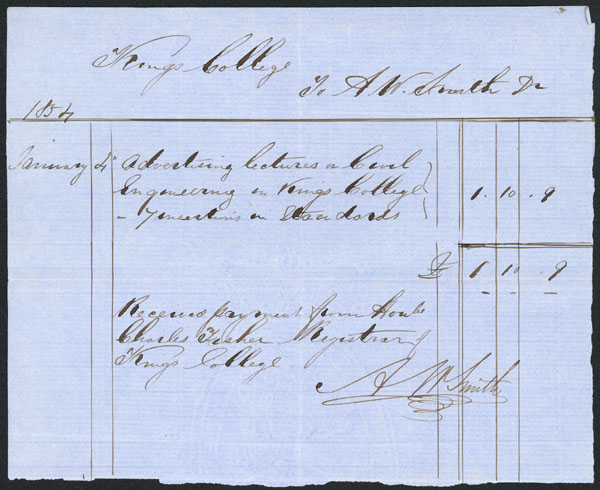 Kings College
To A W. Smith Dr
1854
January 4" Advertising lectures on Civil
Engineering in Kings College
- 7 insertions in Standards 1 . 10 . 9
£ 1 10 . 9
Received payment from Honble
Charles Fisher Registrar of
Kings College
A W Smith